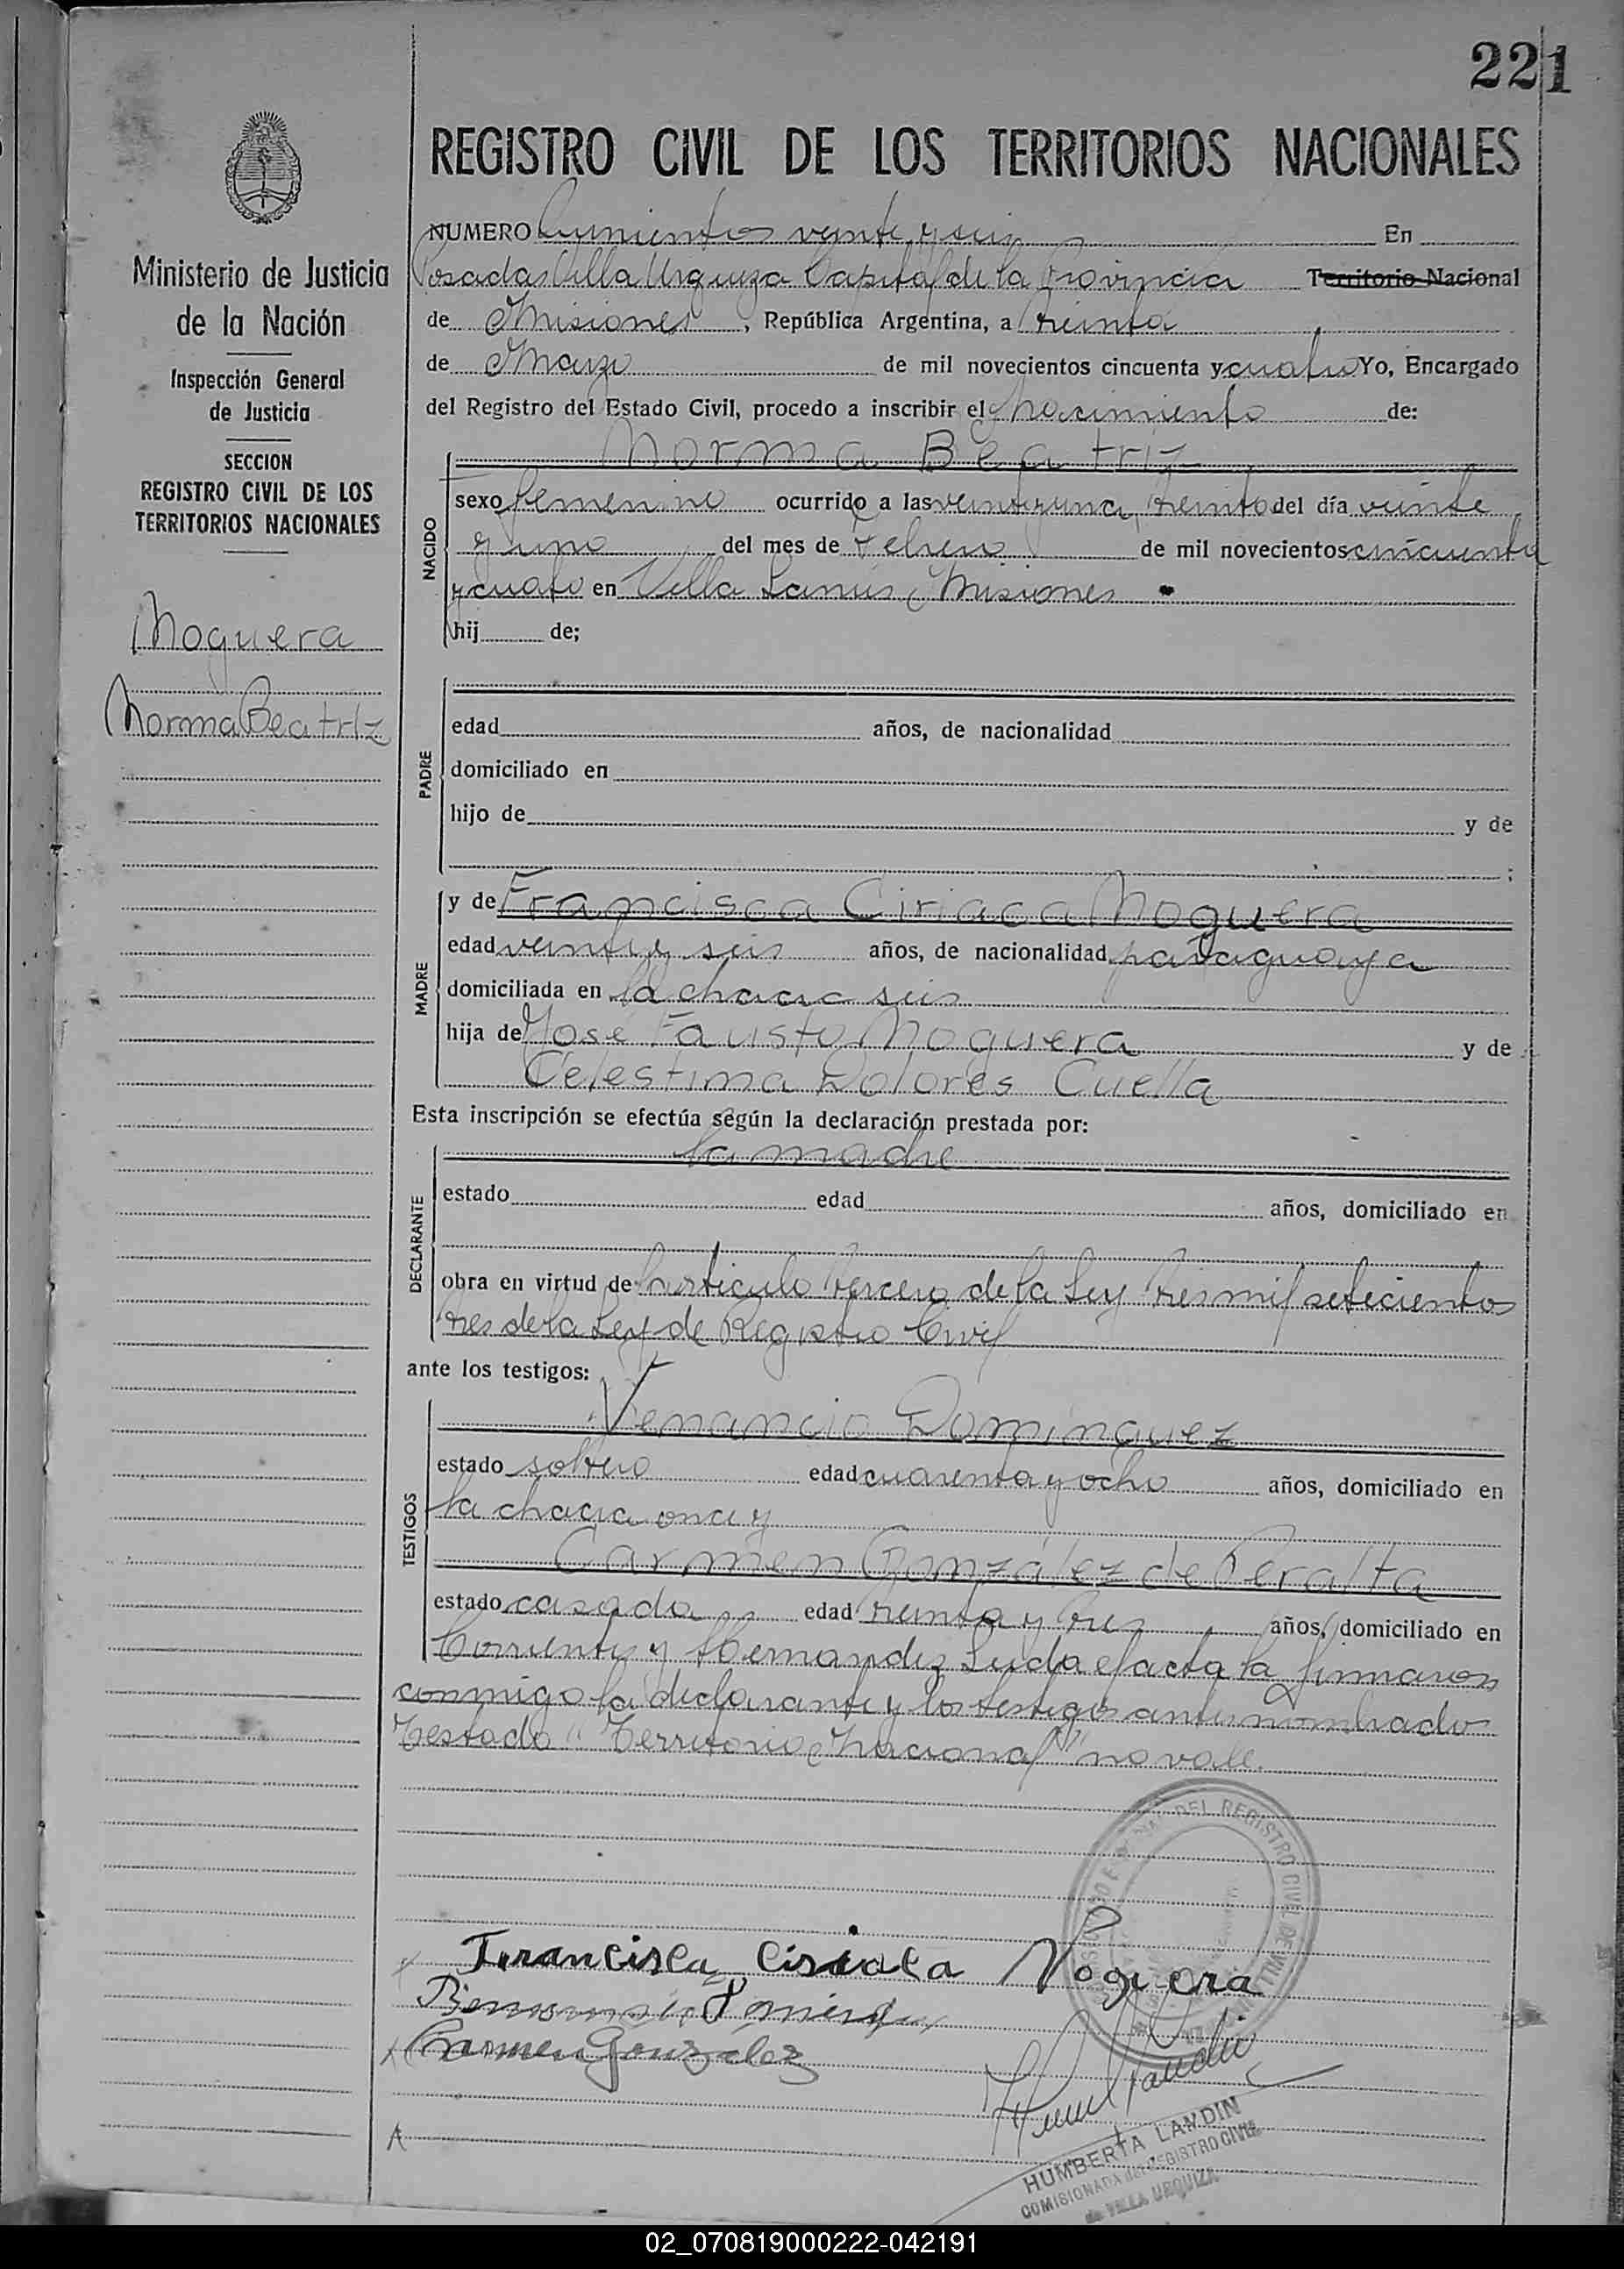 221
REGISTRO CIVIL DE LOS TERRITORIOS NACIONALES
Ministerio de Justicia
de la Nación
Inspección General
de Justicia
SECCION
REGISTRO CIVIL DE LOS
TERRITORIOS NACIONALES
Noguera
Norma Beatriz
NUMERO veinte y seis En
Posadas Villa Urquiza Capital de la Provincia Territorio Nacional
de Misiones, República Argentina, a treinta
de Marzo de mil novecientos cincuenta y cuatro Yo, Encargado
del Registro del Estado Civil, procedo a inscribir el nacimiento de:
Norma Beatriz
NACIDO
sexo femenino ocurrido a las veintiyuna treinta del día veinte
y uno del mes de Febrero de mil novecientos cincuenta
y cuatro en Villa Lanús Misiones
hij de;
PADRE
edad años, de nacionalidad
domiciliado en
hijo de y de
;
MADRE
y de Francisca Ciriaca Noguera
edad veinte y seis años, de nacionalidad paraguaya
domiciliada en la chacra seis
hija de José Fausto Noguera y de
Celestina Dolores Cuella
Esta inscripción se efectúa según la declaración prestada por:
la madre
DECLARANTE
estado edad años, domiciliado en
obra en virtud de artículo tercero de la Ley tres mil setecientos
tres de la Ley de Registro Civil
ante los testigos:
TESTIGOS
Venancio Dominguez
estado soltero edad cuarenta y ocho años, domiciliado en
la chacra once y
Carmen González de Peralta
estado casada edad treinta y tres años, domiciliado en
Corrientes y Hernandez Leida el acta la firmaron
conmigo la declarante y los testigos antes nombrados
Testado "Territorio Nacional" no vale.
DEL REGISTRO CIVIL DE VILLA
Francisca Ciriaca Noguera
Carmen González
HUMBERTA LANDIN
COMISIONADA del REGISTRO CIVIL
de VILLA URQUIZA
02_070819000222-042191